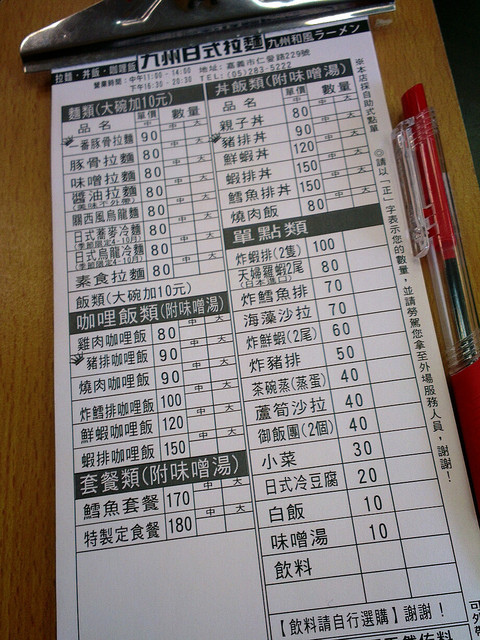 九州日式拉麵 九州和風ラーメン
拉麵・丼飯・咖哩飯
營業時間：中午11:00 - 14:00
下午16:30 - 20:30
地址：嘉義市仁愛路229號
TEL：(05)283-5222
麵類(大碗加10元)
品名 單價 數量
中 中 大
一番豚骨拉麵 90 中 大
豚骨拉麵 80 中 大
味噌拉麵 80 中 大
醬油拉麵 80 中 大
(美味不外帶)
關西風烏龍麵 80 中 大
日式蕎麥冷麵 80 中 大
(季節限定4-10月)
日式烏龍冷麵 80 中 大
(季節限定4-10月)
素食拉麵 80 中 大
飯類(大碗加10元)
咖哩飯類(附味噌湯)
雞肉咖哩飯 80 中 大
豬排咖哩飯 90 中 大
燒肉咖哩飯 90 中 大
炸鱈排咖哩飯 100 中 大
鮮蝦咖哩飯 120 中 大
蝦排咖哩飯 150 中 大
套餐類(附味噌湯)
鱈魚套餐 170 中 大
特製定食餐 180 中 大
丼飯類(附味噌湯)
品名 單價 數量
中 中 大
親子丼 80 中 大
豬排丼 90 中 大
鮮蝦丼 120 中 大
蝦排丼 150 中 大
鱈魚排丼 150 中 大
燒肉飯 80 中 大
單點類
炸蝦排(2隻) 100
天婦羅蝦2尾 80
(日本進口)
炸鱈魚排 70
海藻沙拉 70
炸鮮蝦(2尾) 60
炸豬排 50
茶碗蒸(蒸蛋) 40
蘆筍沙拉 40
御飯團(2個) 40
小菜 30
日式冷豆腐 20
白飯 10
味噌湯 10
飲料
【飲料請自行選購】謝謝！
※本店採自助式點單
◎請以「正」字表示您的數量，並請勞駕您拿至外場服務人員，謝謝！